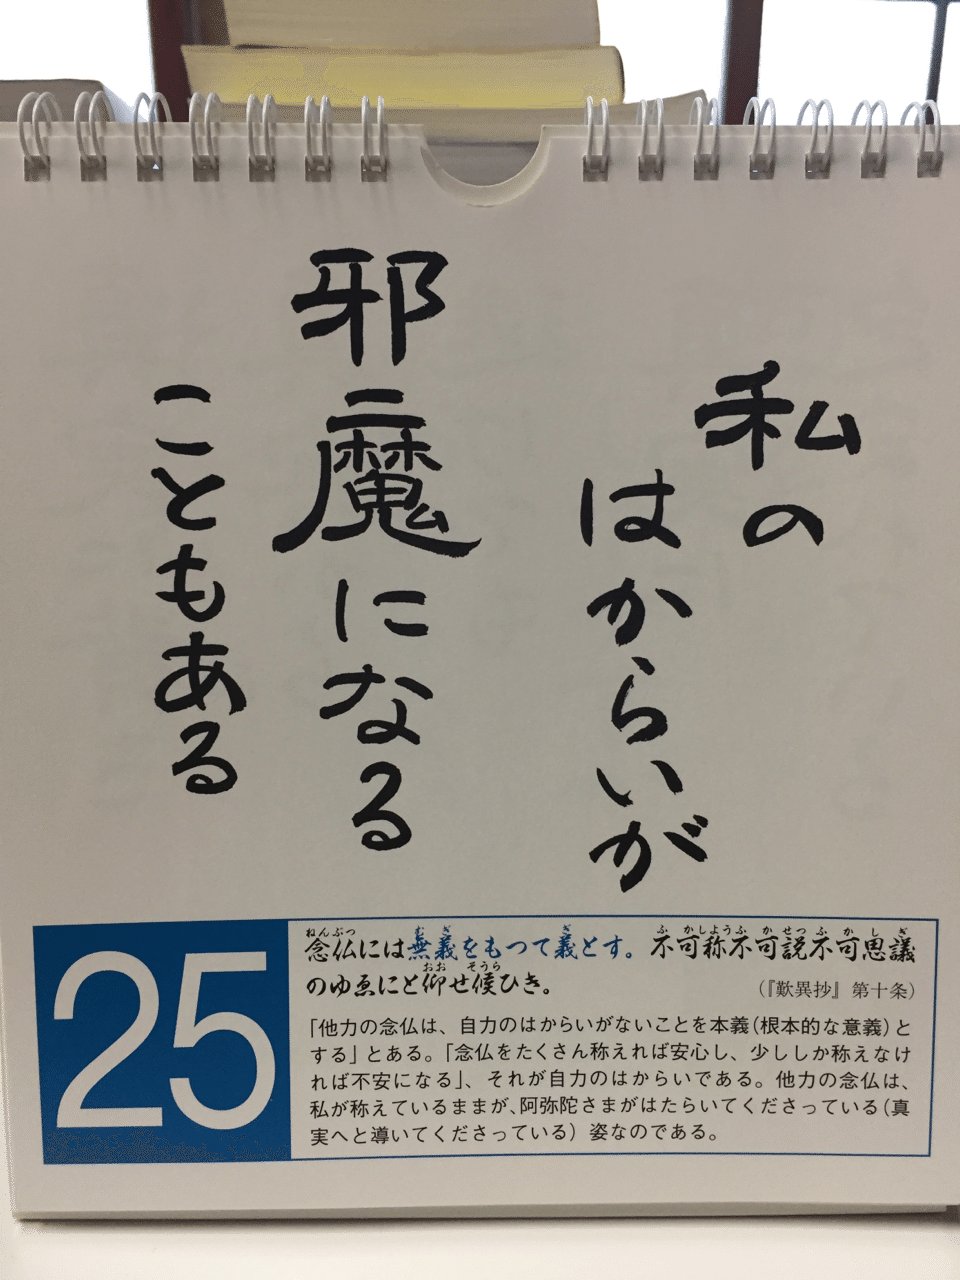 私の
はからいが
邪魔になる
こともある
25
念仏には無義をもつて義とす。不可称不可説不可思議
のゆゑにと仰せ候ひき。
(『歎異抄』第十条)
「他力の念仏は、自力のはからいがないことを本義(根本的な意義)と
する」とある。「念仏をたくさん称えれば安心し、少ししか称えなけ
れば不安になる」、それが自力のはからいである。他力の念仏は、
私が称えているままが、阿弥陀さまがはたらいてくださっている(真
実へと導いてくださっている)姿なのである。